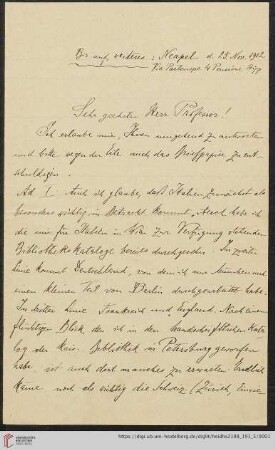 Bis auf weiteres: Neapel d. 28. Nov. 1902
Via Partenope 4 Pensione
Sehr geehrter Herr Professor!
Ich erlaube mir, Ihnen umgehend zu antworten
und bitte wegen der Eile auch das Briefpapier zu ent-
schuldigen.
Ad I. Auch ich glaube, daß Italien zunächst als
besonders wichtig in Betracht kommt. Auch habe ich
die mir für Italien in Wien zur Verfügung stehenden
Bibliothekskataloge bereits durchgesehen. In zweiter
Linie kommt Deutschland, von dem ich nur München und
einen kleinen Teil von Berlin durchgearbeitet habe
In dritter Linie Frankreich und England. Nach einem
flüchtigen Blick, den ich in den handschriftlichen Kata-
log der Kais. Bibliothek in Petersburg geworfen
habe, ist auch dort manches zu erwarten. Endlich
käme noch als wichtig die Schweiz (Zürich,
https://digi.ub.uni-heidelberg.de/diglit/heidhs2188_191_5/0001
© Universitätsbibliothek Heidelberg